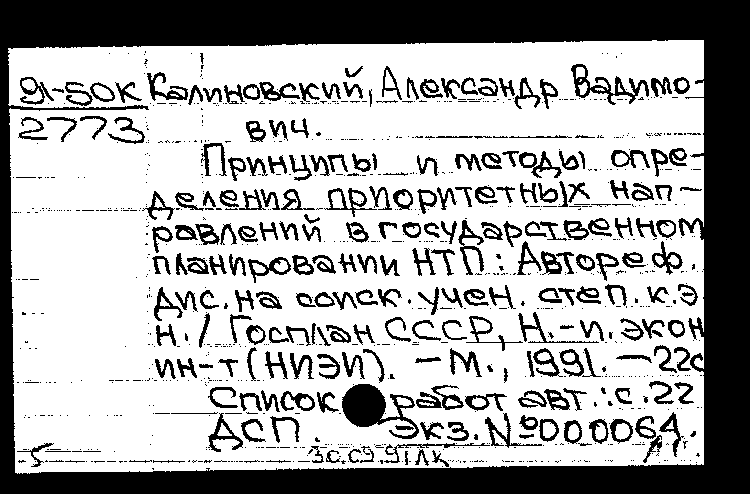 91-50к Калиновский, Александр Вадимо-
2773 вич.
Принципы и методы опре-
деления приоритетных нап-
равлений в государственном
планировании НТП: Автореф.
дис. на соиск. учен. степ. к.э.
н. / Госплан СССР, Н.-и. экон
ин-т (НИЭИ). - М., 1991. - 22с
Список работ авт.: с. 22
ДСП. Экз. №000064.
5 30.09.91